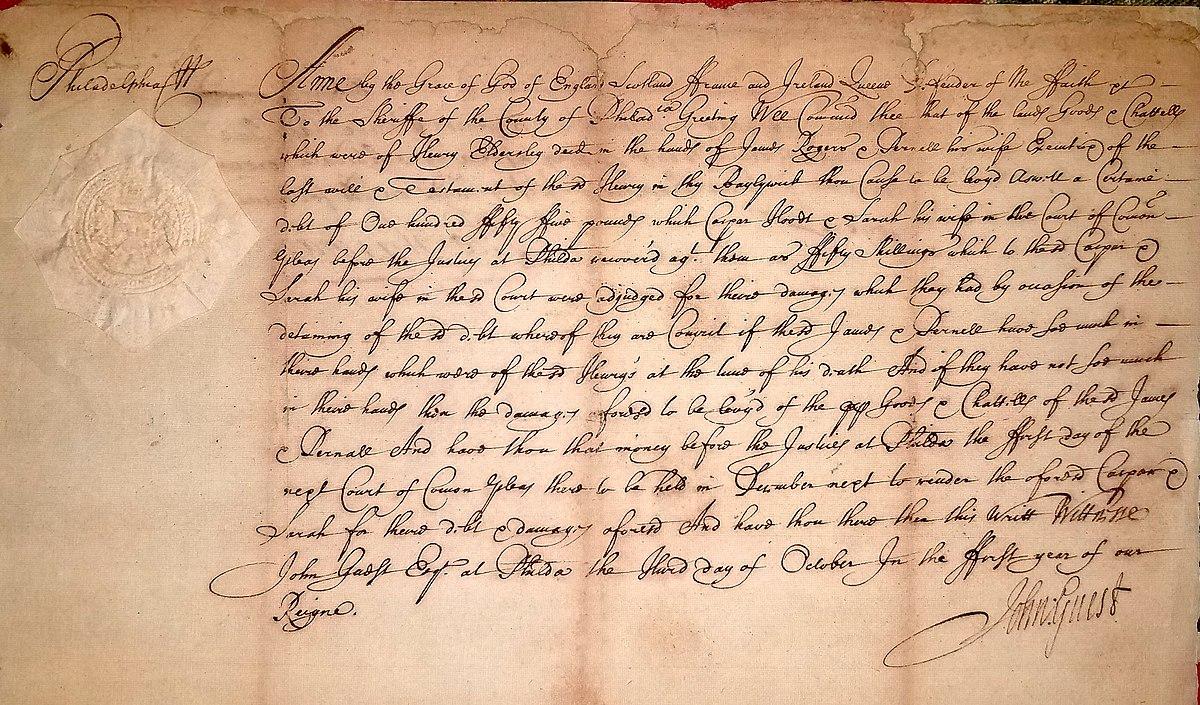 Philadelphia ss
Anne by the Grace of God of England Scotland ffrance and Ireland Queene Defender of the ffaith &c
To the Sheriffe of the County of Philadia Greeting Wee Comand thee that of the lands Goods & Chattells
which were of Henry Eldersley decd in the hands of James Rogers & Pernell his wife Executrix of the
last will & Testament of the sd Henry in thy Baylywick thou Cause to be levyd aswell a Certaine
debt of One hundred ffifty ffive pounds which Caspar Hoodt & Sarah his wife in the Court of Comon
Pleas before the Justices at Philda recover'd agt. them as ffifty Shillings which to the sd Caspar &
Sarah his wife in the sd Court were adjudged for theire damages which they had by occasion of the
detaining of the sd debt whereof they are Convict if the sd James & Pernell have soe much in
theire hands which were of the sd Henry's at the time of his death And if they have not soe much
in theire hands then the damages foresd to be levy'd of the Goods & Chattells of the sd James
& Pernall And have thou that money before the Justices at Philda the ffirst day of the
next Court of Comon Pleas there to be held in December next to render the aforesd Caspar &
Sarah for theire debt & damages aforesd And have thou there then this Writt Wittnesse
John Guest Esqr. at Philda the Third day of October In the ffirst year of our
Reigne.
John: Guest